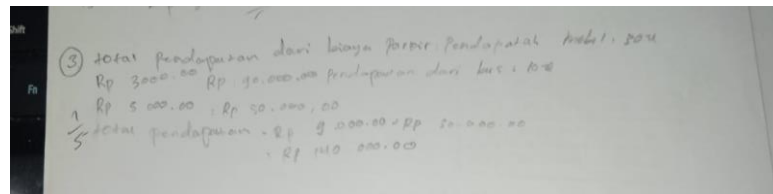 Shift
Fn
③ total Pendapatan dari biaya Parkir. Pendapatan mobil.
Rp 3000.00 Rp 90.000.00 Pendapatan dari bus. 10
Rp 5 000.00 : Rp 50.000,00
total pendapatan = Rp 9 000.00 + Rp 50.000.00
= Rp 140 000.00